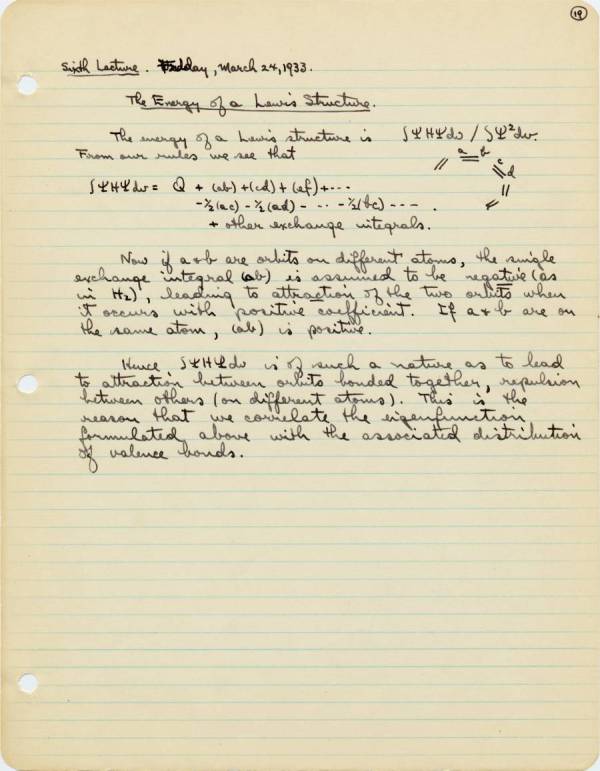 19
Sixth Lecture. Friday, March 24, 1933.
The Energy of a Lewis Structure.
The energy of a Lewis structure is ∫ΨHΨdv / ∫Ψ²dv.
From our rules we see that
a b
c
d
∫ΨHΨdv = Q + (ab) + (cd) + (ef) + ···
-½(ac) - ½(ad) - ·· - ½(bc) - - - .
+ other exchange integrals.
Now if a & b are orbits on different atoms, the single
exchange integral (ab) is assumed to be negative (as
in H₂), leading to attraction of the two orbits when
it occurs with positive coefficient. If a & b are on
the same atom, (ab) is positive.
Hence ∫ΨHΨdv is of such a nature as to lead
to attraction between orbits bonded together, repulsion
between others (on different atoms). This is the
reason that we correlate the eigenfunction
formulated above with the associated distribution
of valence bonds.